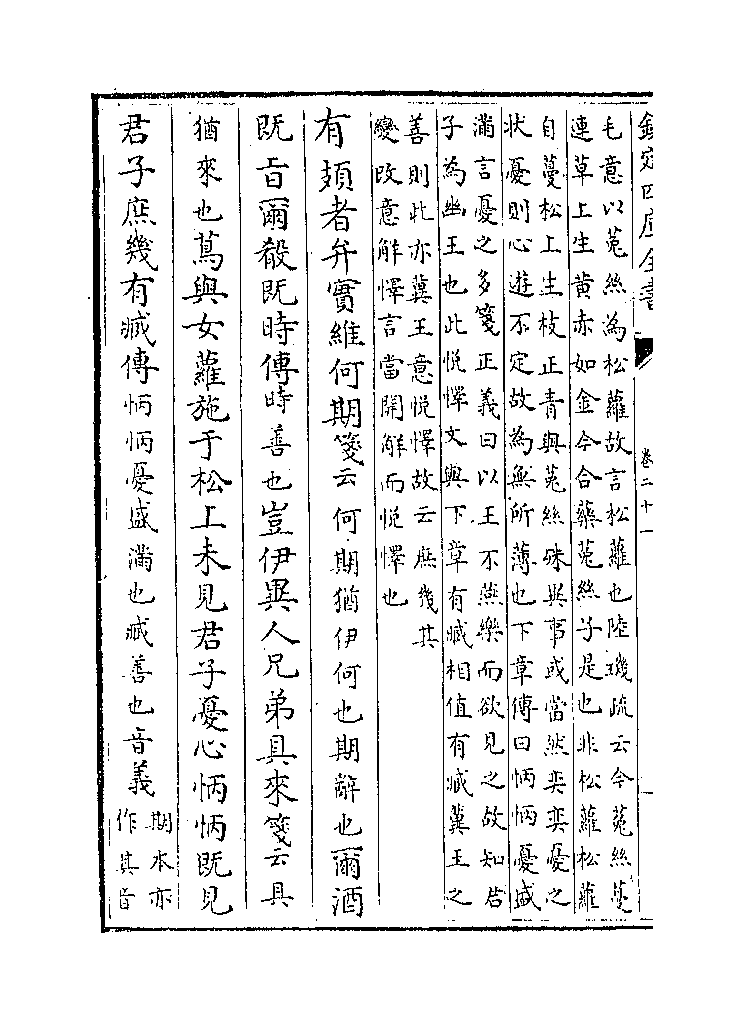 欽定四庫全書
卷二十一
毛意以菟絲為松蘿故言松蘿也陸璣疏云今菟絲蔓
連草上生黄赤如金今合藥菟絲子是也非松蘿松蘿
自蔓松上生枝正青與菟絲殊異事或當然奕奕憂之
狀憂則心遊不定故為無所薄也下章傳曰怲怲憂盛
滿言憂之多箋正義曰以王不燕樂而欲見之故知君
子為幽王也此悦懌文與下章有臧相值有臧冀王之
善則此亦冀王意悦懌故云庶幾其
變改意解懌言當開解而悦懌也
有頍者弁實維何期箋云何期猶伊何也期辭也爾酒
既旨爾殽既時傳時善也豈伊異人兄弟具來箋云具
猶來也蔦與女蘿施于松上未見君子憂心怲怲既見
君子庶幾有臧傳怲怲憂盛滿也臧善也音義
期本亦
作其音